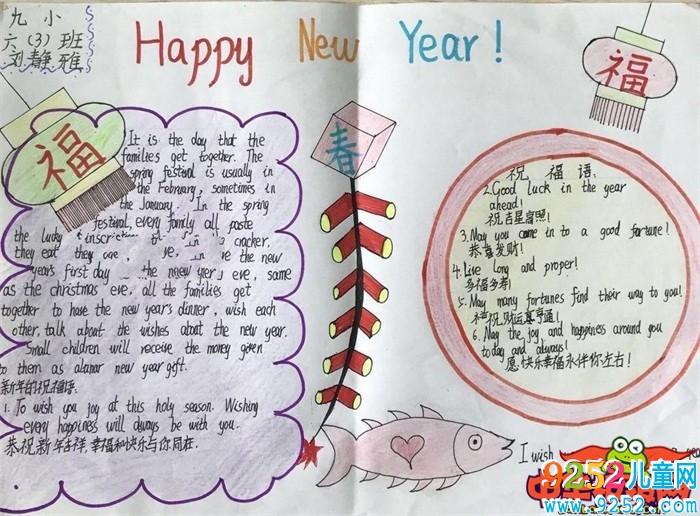 九小
六(3)班
刘静雅
Happy New Year!
福
福
春
It is the day that the
families get together. The
spring festival is usually in
the February, sometimes in
the January. In the spring
festival, every family all paste
the lucky inscrip
cracker,
they eat they are
ve, in the new
year's first day the new yer' eve, same
as the christmas eve, all the families get
together to have the new year's dinner, wish each
other, talk about the wishes about the new year.
Small children will receive the money given
to them as alanar new year gift.
新年的祝福语:
1. To wish you joy at this holy season. Wishing
every happiness will always be with you.
恭祝新年吉祥,幸福和快乐与你同在.
祝福语:
2. Good luck in the year
ahead!
祝吉星高照!
3. May you come in to a good fortune!
恭喜发财!
4. Live long and proper!
多福多寿!
5. May many fortunes find their way to you!
祝财运亨通!
6. May the joy and happiness around you
today and always!
愿快乐幸福永伴你左右!
I wish
9252儿童网
www.9252.com